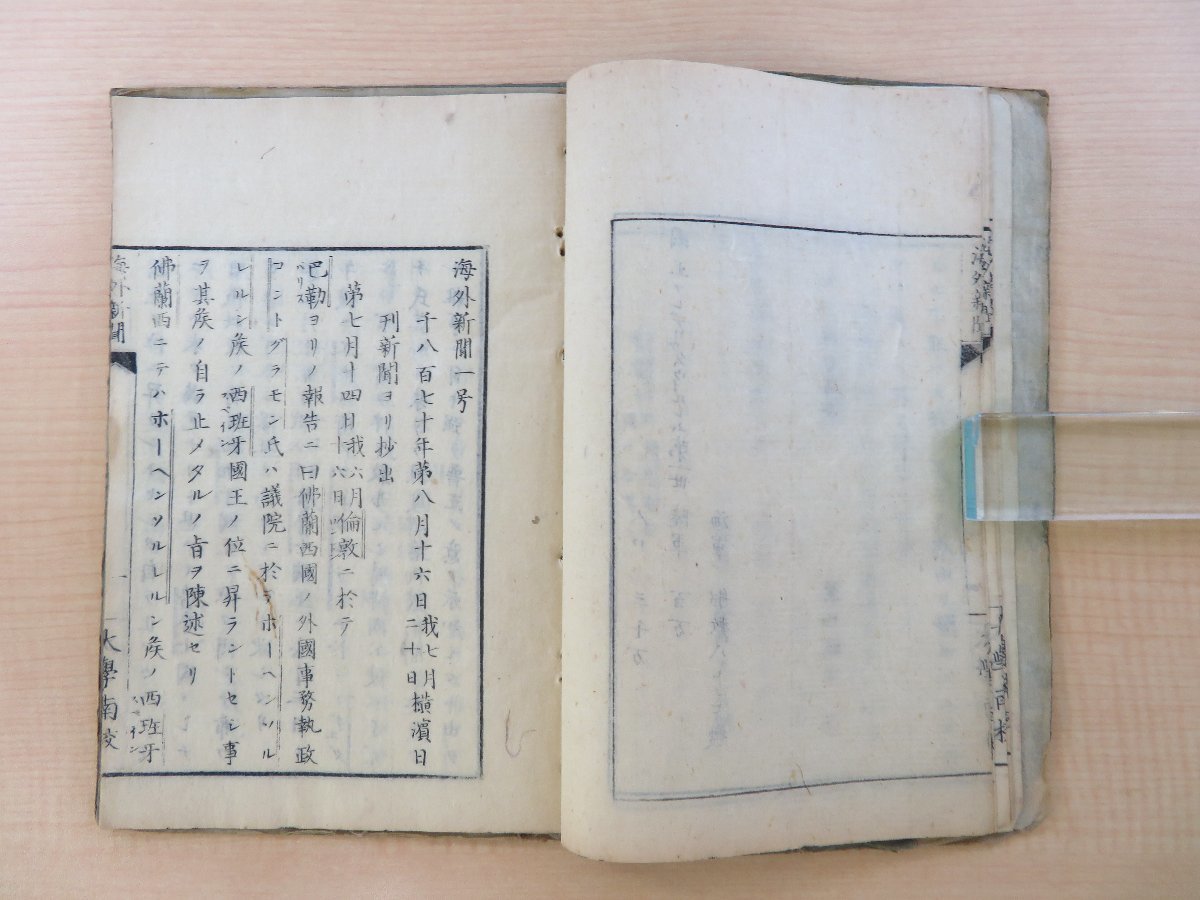 海外新聞一号
千八百七十年第八月十六日我七月二十日横濱日
刊新聞ヨリ抄出
第七月十四日我六月十六日倫敦ニ於テ
巴勒ヨリノ報告ニ曰佛蘭西國ノ外國事務執政
コントグラモン氏ハ議院ニ於テホーヘンソル
レルン矦ノ西班牙國王ノ位ニ昇ラントセシ事
ヲ其矦ノ自ラ止メタルノ旨ヲ陳述セリ
佛蘭西ニテハホーヘンソルレルン矦ノ西班牙
海外新聞
一
大學南校